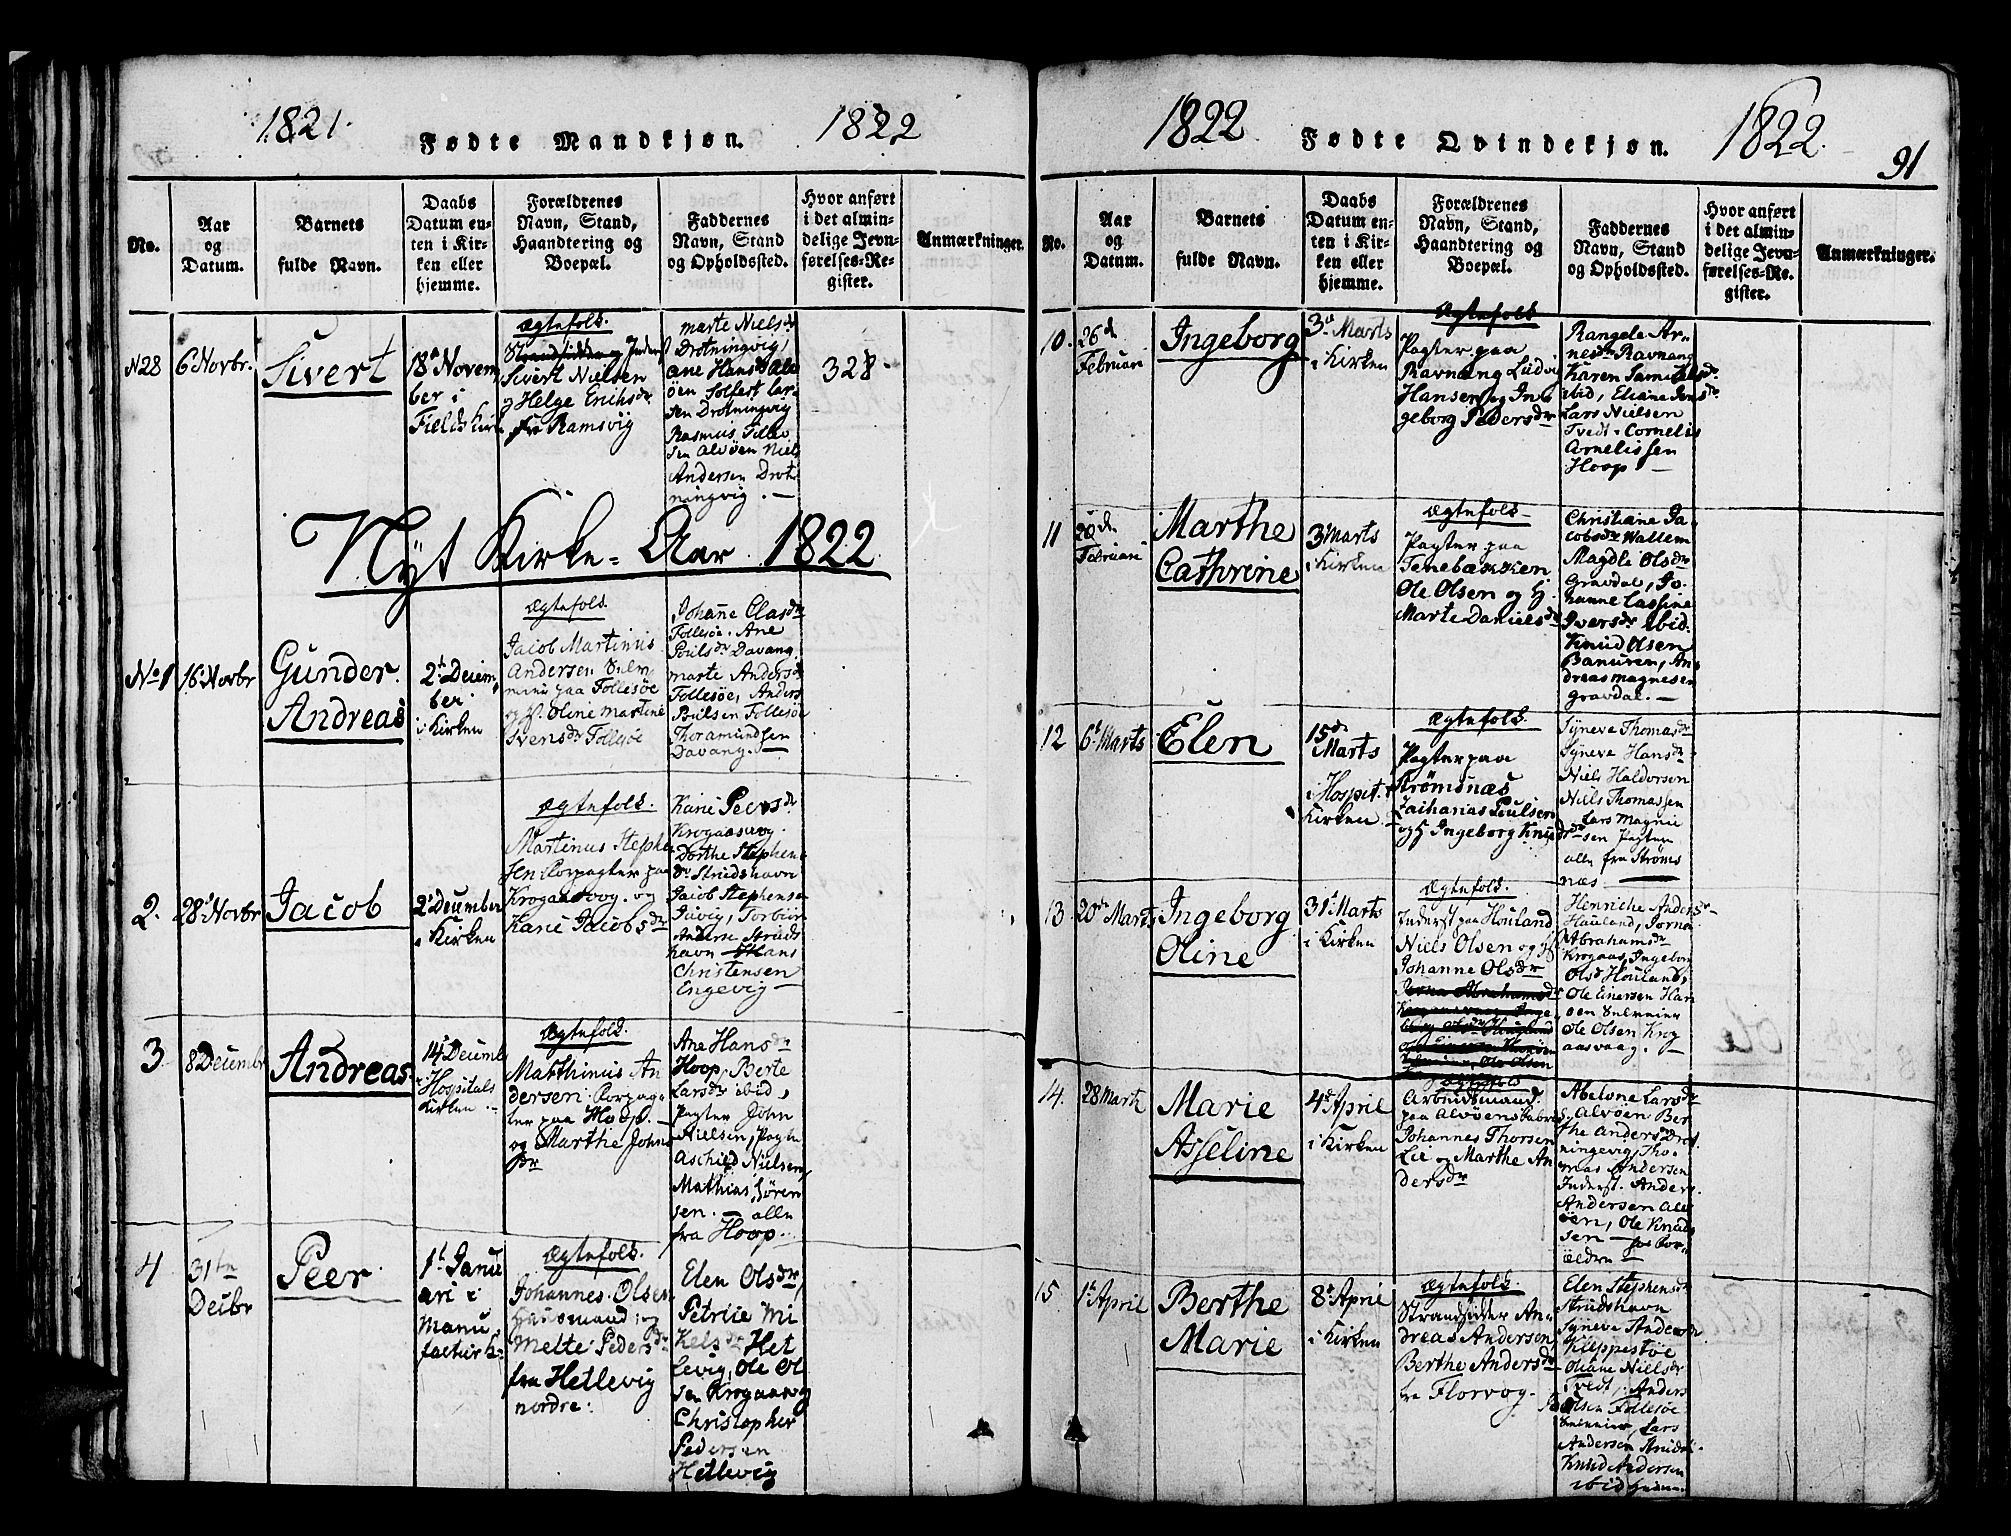 1821.
Fødte Mandkjøn.
1822
No.
Aar
og
Datum.
Barnets
fulde Navn.
Daabs
Datum en-
ten i Kir-
ken eller
hjemme.
Forældrenes
Navn, Stand,
Haandtering og
Boepæl.
Faddernes
Navn, Stand
og Opholdssted.
Hvor anført
i det almin-
delige Jevn-
førelses-Re-
gister.
Anmærkninger.
N28
6 Novbr.
Sivert
18d Novem
ber i
Fields Kirk
Ægtefolk.
Sivert Nielsen
og Helge Erichsdr
fr Ramsvig
marte Nielsdr
Drotningvig,
ane Hansdr Alv
øen Solfert Lar-
sen Drotningvig
Rasmus Tille
sen Alvøen Niels
Andersen Drot
ningvig. —
328
Nyt Kirke-Aar 1822
No 1
16 Novbr
Gunder
Andreas
2d Decem
ber
i Kirken
Ægtefolk.
Jacob Martinus
Andersen
paa Follesøe
og H. Oline Martine
Svensdr Follesøe
Johanne Clasdr
Follesøe. Ane
Poulsdr Davang.
marte Andersdr
Follesøe, Anders
Poulsen Follesøe
Thoramundsen
Davang. —
2.
28d Novbr
Jacob
2d December
i Kirken
Ægtefolk.
Martinus Stephen
sen Corpagter paa
Krogaasvog. og
Karie Jacobsdr
Karie Peersdr
Krogaasvog.
Dorthe Stephens
dr Strudshavn
Jacob Stephensen
Juvig, Torbiør
Anderse Struds
havn Hans
Christensen
Engevig —
3
8 Decembr
Andreas
14d Decemb
i Hospitals
Kirken.
Ægtefolk.
Marthinus An
dersen. Corpag-
ter paa Hoop. —
og Marthe Johns
dr
Ane Hansdr
Hoop, Berte
Larsdr ibid,
Pagter John
Nielsen, Pagter
Aschild Nielsen,
Mathias Søren
sen. — alle
fra Hoop.
4
31te
Decbr
Peer
1d Janu
ari i
Manu
factur h:
Ægtefolk.
Johannes Olsen
Huusmand og
Mette Pedersdr
fra Hetlevig
nordre.
Elen Olsdr,
Petrlie Mi
Kelsdr Het
levig, Ole Ol
sen Krogaasvog
Christopher
Pedersen
Hetlevig
1822
Fødte Qvindekjøn.
1822.
91
No.
Aar
og
Datum.
Barnets
fulde Navn.
Daabs
Datum en-
ten i Kir-
ken eller
hjemme.
Forældrenes
Navn, Stand,
Haandtering og
Boepæl.
Faddernes
Navn, Stand
og Opholdssted.
Hvor anført
i det almin-
delige Jevn-
førelses-Re-
gister.
Anmærkninger.
10.
26d
Februar
Ingeborg
3d Marts
i Kirken
Ægtefolk
Pagter paa
Ravnang Ludvig
Hansen og In
geborg Pedersdr
Rangele Ar-
nesdr Ravnang
Karen Samuelsdr
ibid, Eliane Jensdr
Lars Nielsen
Tvedt. Cornelis
Cornelissen
Hoop —
11
20d
Februar
Marthe
Cathrine
3d Marts
i Kirken
Ægtefolk
Pagter paa
Tenebækken
Ole Olsen og H.
Marte Danielsdr
Christiane Ja-
cobsdr Wallem
Magdle Olsdr
Gravdal, Jo
hanne Cassine
Iversdr ibid.
Knud Olsen
Banuren, An
dreas Magnesen
gravdal. —
12
6d Marts
Elen
15de
Marts
i Hospit.
Kirken
Ægtefolk
Pagter paa
Strømsnæs
Zacharias Poulsen
og H Ingeborg Knudsdr
Syneve Thomasdr
Syneve Hansdr
Niels Haldorsen
Niels Thomassen
Lars Magne
sen Pagter
alle fra Strøms
næs
13.
20de Marts
Ingeborg
Oline
31d Marts
i Kirken
Ægtefolk.
Inderst paa Houland
Niels Olsen og H
Johanne Olsdr
Henriche Andersdr
Hauland, Jorna
Abrahamsdr
Krogaas, Ingeborg
Olsd Houland,
Ole Einersen Han
øen
Ole Olsen Krog
aasvaag. —
14.
28 Marts
Marie
Asseline
4de April
i Kirken
Ægtefolk
Arbeidsmand
paa Alvøens Fabriq
Johannes Thorsen
Lie og Marthe An
dersdr
Abelone Larsdr
Alvøen Ber
the Andersdr Drot
ningevig, Tho-
mas Andersen
Inderst. Anders
Andersen Alv
øen, Ole Knud
sen — for For-
ældre —
15.
1d April
Berthe
Marie
8d April
i Kirken
Ægtefolk.
Strandsidder An-
dreas Andersen
Berthe Andersdr
fra Florvog.
Elen Stephensdr
Strudshavn
Syneve Andersdr
Kleppestøe
Oliane Nielsdr
Tvedt, Anders
Olsen Follesøe
Lars
Andersen Struds
Knud Andersen
ibid